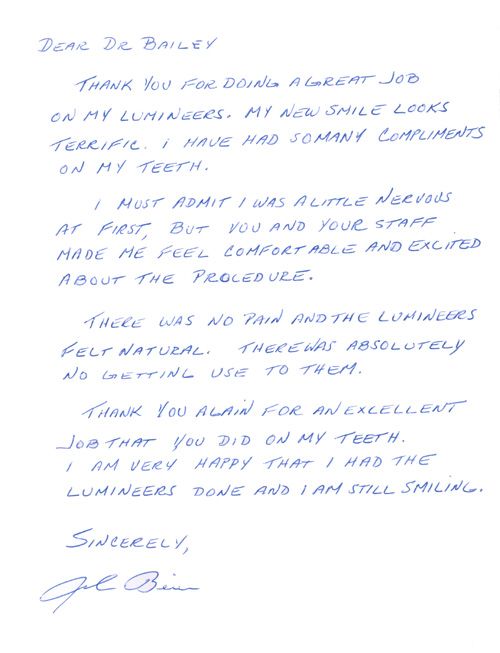 DEAR DR BAILEY
THANK YOU FOR DOING A GREAT JOB
ON MY LUMINEERS. MY NEW SMILE LOOKS
TERRIFIC. I HAVE HAD SO MANY COMPLIMENTS
ON MY TEETH.
I MUST ADMIT I WAS A LITTLE NERVOUS
AT FIRST, BUT YOU AND YOUR STAFF
MADE ME FEEL COMFORTABLE AND EXCITED
ABOUT THE PROCEDURE.
THERE WAS NO PAIN AND THE LUMINEERS
FELT NATURAL. THERE WAS ABSOLUTELY
NO GETTING USE TO THEM.
THANK YOU AGAIN FOR AN EXCELLENT
JOB THAT YOU DID ON MY TEETH.
I AM VERY HAPPY THAT I HAD THE
LUMINEERS DONE AND I AM STILL SMILING.
SINCERELY,